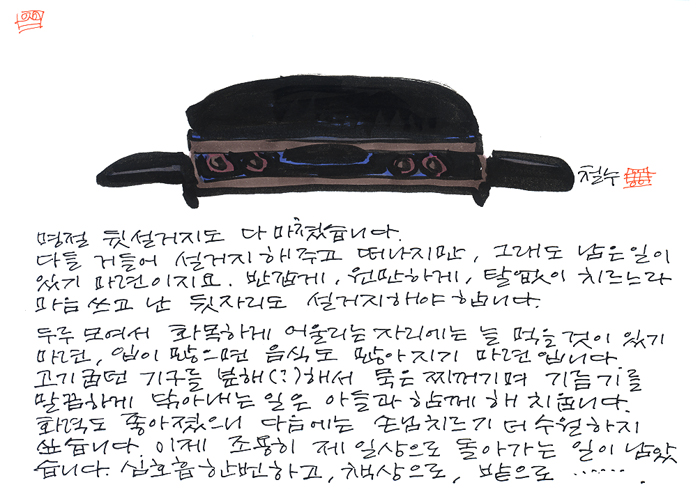 철수
명절 뒷설거지도 다 마쳤습니다.
다들 거들어 설거지 해주고 떠나지만, 그래도 남은 일이
있기 마련이지요. 반갑게, 원만하게, 탈없이 치르느라
마음 쓰고 난 뒷자리도 설거지해야 합니다.
두루 모여서 화목하게 어울리는 자리에는 늘 먹을 것이 있기
마련, 입이 많으면 음식도 많아지기 마련입니다.
고기굽던 기구를 분해(?)해서 묵은 찌꺼기며 기름기를
말끔하게 닦아내는 일은 아들과 함께 해 치웁니다.
화력도 좋아졌으니 다음에는 손님치르기 더 수월하지
싶습니다. 이제 조용히 제 일상으로 돌아가는 일이 남았
습니다. 심호흡 한번 하고, 책상으로, 밭으로 ······